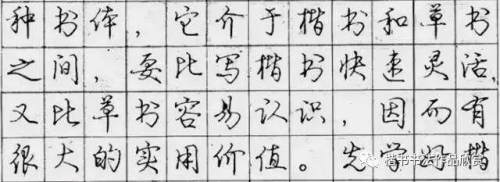 种书体，它介于楷书和草书
之间，要比写楷书快速灵活，
又比草书容易认识，因而有
很大的实用价值。先学好楷
楷书书法作品欣赏